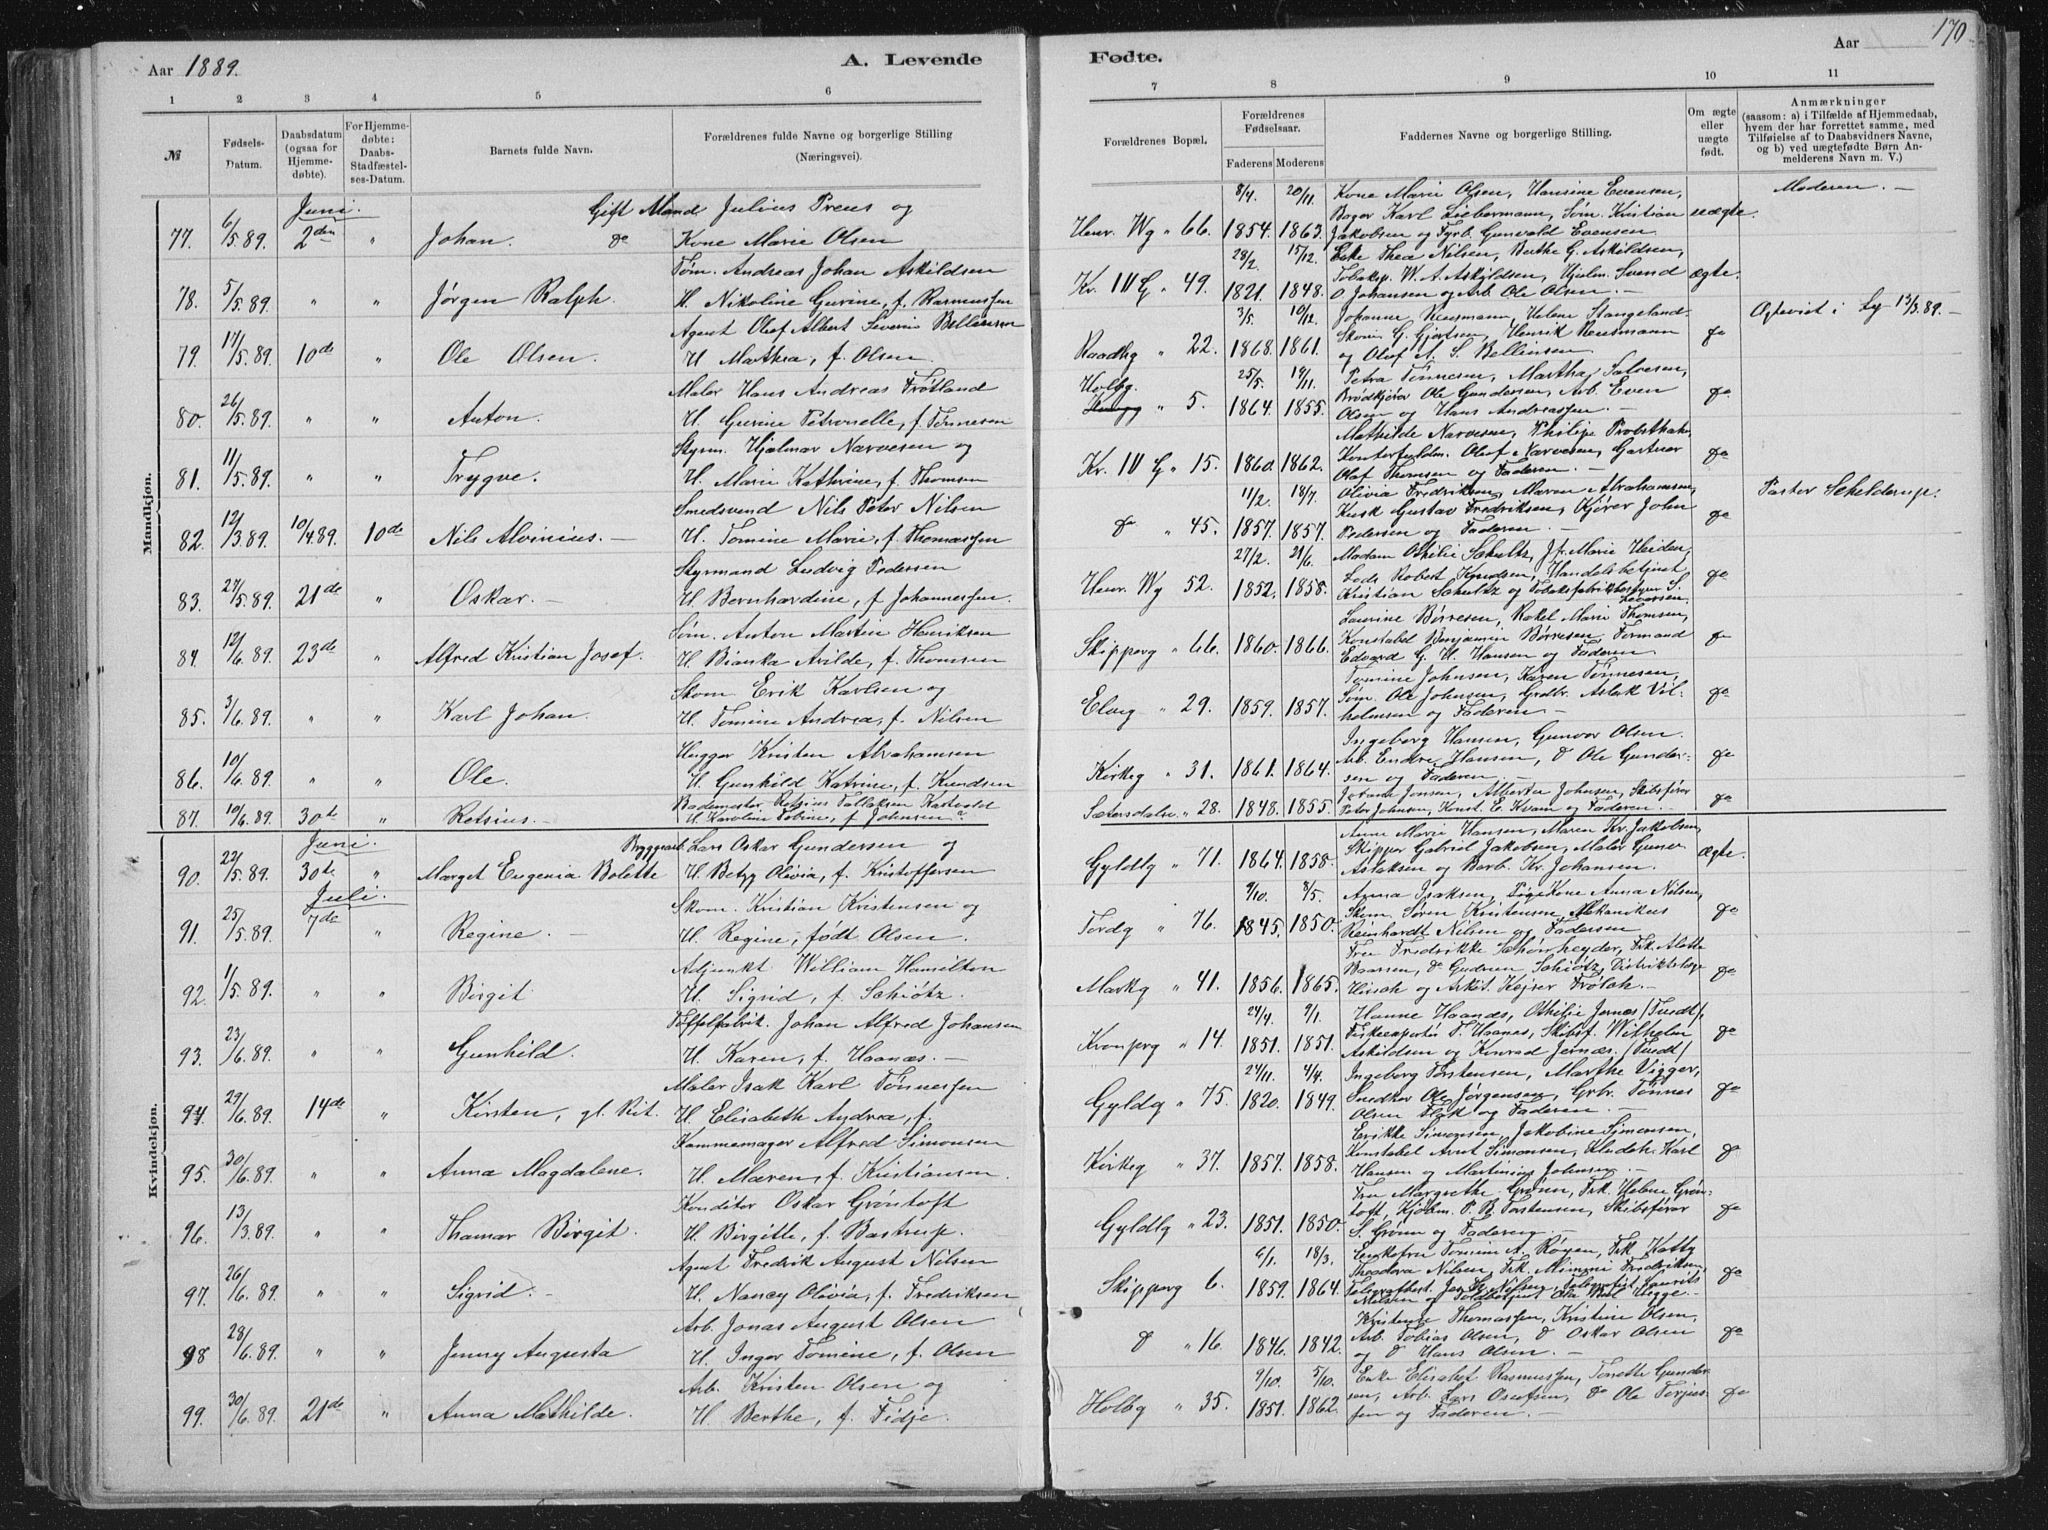 Aar 1889.
A. Levende
Fødte.
Aar
170
1 2 3 4 5 6 7 8 9 10 11
№
Fødsels-Datum.
Daabsdatum (ogsaa for Hjemme-døbte).
For Hjemme-døbte: Daabs-Stadfæstel-ses-Datum.
Barnets fulde Navn.
Forældrenes fulde Navne og borgerlige Stilling (Næringsvei).
Forældrenes Bopæl.
Forældrenes Fødselsaar.
Faderens Moderens
Faddernes Navne og borgerlige Stilling.
Om ægte eller uægte født.
Anmærkninger
(saasom: a) i Tilfælde af Hjemmedaab, hvem der har forrettet samme, med Tilføielse af to Daabsvidners Navne, og b) ved uægtefødte Børn An-melderens Navn m. V.)
Mandkjøn.
Juni.
77. 6/5.89. 2den " Johan.
Gift Mand Julius Preus og
do Kone Marie Olsen
Henr. Wg " 66. 8/4 1854. 20/11 1863.
Kone Marie Olsen, Hansine Evensen,
Bager Karl Liebermann, Søm. Kristian
Jakobsen og Fyrb. Gunvald Evensen
uægte.
Moderen. —
78. 5/5.89. " " Jørgen Ralph.
Tøm. Andreas Johan Askildsen
H. Nikoline Gurine, f. Rasmussen
Kr. IV G " 49. 28/2 1821. 15/12 1848.
Enke Thea Nilsen, Berthe G. Askildsen,
Tobaksp. W. A. Askildsen, Hjulm. Svend
O. Johansen og Arb. Ole Olsen. —
ægte.
79 17/5.89. 10de " Ole Olsen.
Agent Olaf Albert Severin Bellinsen
H. Marthea, f. Olsen.
Raadhg " 22. 3/5 1868. 10/12 1861.
Johanne Reusmann, Helene Stangeland
Skom. G. Gjertsen, Henrik Reusmann
og Olaf A. S. Bellinsen
do
Ogteviet i Ly 13/3.89. —
80. 26/5.89. " " Anton.
Maler Hans Andreas Frøtland
H. Gurine Petronelle, f. Tønnesen
Holbg. " 5. 25/5 1864. 19/11 1855.
Petra Tønnesen, Martha Salvesen,
Brødkjører Ole Gundersen, Arb. Even
Olsen og Hans Andreassen. —
do
81. 11/5.89. " " Trygve.
Styrm. Hjalmar Narvesen og
H. Marie Kathrine, f. Thomsen
Kr. IV G " 15. 1860. 1862.
Mathilde Narvesen, Philip Probsthahn,
Kontorfuldm. Oluf Narvesen, Gartner
Olaf Thomsen og Faderen. —
do
82. 12/3.89. 10/4.89. 10de Nils Alvinius. —
Smedsvend Nils Peter Nilsen
H. Tomine Marie, f. Thomassen
do " 45. 11/2 1857. 18/7 1857.
Olivia Fredriksen, Maren Abrahamsen,
Kusk Gustav Fredriksen, Kjører John
Pedersen og Faderen. —
do
Pastor Schelderup.
83. 27/5.89. 21de " Oskar. —
Styrmand Ludvig Pedersen
H. Bernhardine, f. Johannessen.
Henr. Wg 52. 27/2 1852. 21/6 1858.
Madam Othilie Schultz, Jfr. Marie Heiden,
Lods Robert Knudsen, Handelsbetjent
Kristian Schultz og Tobaksfabriksbestyrer S.
do
84. 12/6.89. 23de " Alfred Kristian Josef.
Søm. Anton Martin Henriksen
H. Bianka Avilde, f. Thomsen
Skipperg " 66. 1860. 1866.
Laurine Børresen, Rakel Marie Thomsen,
Konstabel Benjamin Børresen, Formand
Edvard G. H. Hansen og Faderen
do
85. 3/6.89. " " Karl Johan.
Skom. Erik Karlsen og
H. Tomine Andrea, f. Nilsen
Elveg " 29. 1859. 1857.
Tomine Johnsen, Karen Tønnesen,
Søm. Ole Johnsen, Grdbr. Aslak Vil-
helmsen og Faderen —
do
86. 10/6.89. " " Ole.
Hugger Kristen Abrahamsen
H. Gunhild Katrine, f. Knudsen
Kirkeg " 31. 1861. 1864.
Ingeborg Hansen, Gunvor Olsen.
Arb. Endre Hansen, do Ole Gunder-
sen og Faderen. —
do
87. 10/6.89. 30te " Retsius. —
Bademester Retsius Tallaksen
H. Karoline Tobine, f. Johnsen
Sætersdalsv. " 28. 1848. 1855.
Jensen, Alberta Johnsen, Skibsfører
Peter Johnsen, Konst. E. Kvam og Faderen —
do
Kvindekjøn.
Juni.
90. 22/5.89. 30te " Marget Eugenia Bolette
Bryggearb. Lars Oskar Gundersen og
H. Betzy Olivia, f. Kristoffersen
Gyldlg " 71. 1864. 1858.
Anne Marie Hansen, Maren Kr. Jakobsen,
Skipper Gabriel Jakobsen, Maler Guner
Aslaksen og Barb. Kr. Johansen.
ægte.
Juli.
91. 25/5.89. 7de " Regine. —
Skom. Kristian Kristensen og
H. Regine, født Olsen.
Tordg " 76. 9/10 1845. 8/5 1850.
Agnna Isaksen, Pige Kone Anna Nilsen,
Skom. Søren Kristensen, Mekanikus
Reinhardt Nilsen og Faderen
do
92. 1/5.89. " " Birgit.
Adjunkt William Hamilton
H. Sigrid, f. Schiøtz.
Markg " 41. 1856. 1865.
Fru Fredrikke Schønheyder, Frk. Alette
Baassen, do Gudrun Schiøtz, Distriktslæge
Hirsch og Arkit. Kejser Frølich. —
do
93. 23/6.89. " " Gunhild.
Tøffelfabrik. Johan Alfred Johansen
H. Karen, f. Haanæs. —
Kronprg " 14. 24/4 1851. 9/1 1851.
Hanne Haanæs, Othilie Jernæs /Tvedt/,
Fiskeexportør T. Haanæs, Skibsf. Wilhelm
Askildsen og Konrad Jernæs. /Tvedt/
do
94. 29/6.89. 14de " Kirsten, gl. Rit.
Maler Isak Karl Tønnessen
H. Elisabeth Andrea, f.
Gyldg " 75. 24/11 1820. 4/4 1849.
Ingeborg Torstensen, Marthe Vigger,
Snedker Ole Jørgensen, Grbr. Tønnes
Olsen Flak og Faderen. —
do
95. 30/6.89. " " Anna Magdalene.
Kammemager Alfred Simonsen
H. Maren, f. Kristiansen.
Kirkeg " 37. 1857. 1858.
Erikke Simonsen, Jakobine Simonsen,
Konstabel Arnt Simonsen, Karl
Hansen og Martinius Johnsen. —
do
96. 13/3.89. " " Thamar Birgit.
Konditor Oskar Grøntoft
H. Birgitte, f. Bastrup.
Gyldlg " 23. 1851. 1850.
Fru Margrethe Grønn, Frk. Helene Grøn-
toft, Kjøbm. P. B. Torstensen, Skibsfører
S. Grønn og Faderen. —
do
97. 26/6.89. " " Sigrid. —
Agent Fredrik August Nilsen
H. Nancy Olivia, f. Fredriksen
Skipperg 6. 9/1 1859. 18/3 1864.
Enkefru Tomine A. Røgen, Frk. Katty
Theodora Nilsen, Frk. Mimmi Fredriksen,
Telegrafbest. Nilsen, Telegrafist Laurits
Nilsen og Toldbetjent Ole Vigge —
do
98 28/6.89. " " Jenny Augusta
Arb. Jonas August Olsen
H. Inger Tomine, f. Olsen
do " 16. 1846. 1842.
Kristense Thomassen, Kristine Olsen,
Arb. Tobias Olsen, do Oskar Olsen
og do Hans Olsen. —
do
99. 30/6.89. 21de " Anna Mathilde.
Arb. Kristen Olsen og
H. Berthe, f. Fidje.
Holbg " 35. 9/10 1851. 5/10 1862.
Enke Elisabet Rasmussen, Torette Gunder-
sen, Arb. Lars Osuldsen, do Ole Torjus-
sen og Faderen. —
do